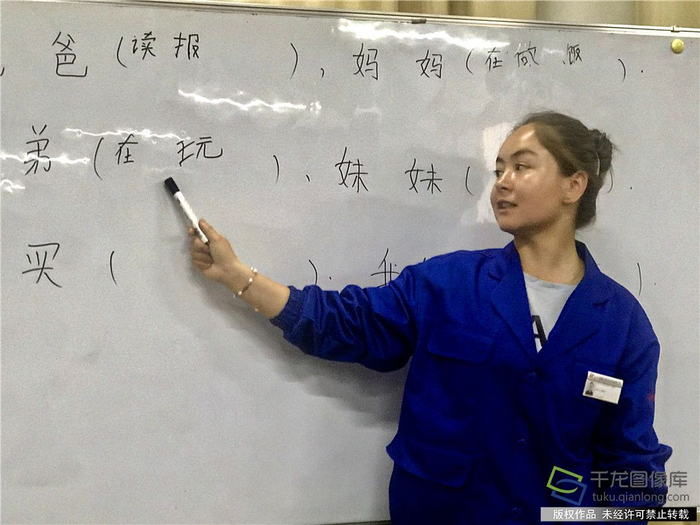 爸(读报 )、妈妈(在做饭 ).
弟(在玩 )、妹妹( ).
买( ). 我 )
A
千龙图像库
tuku.qianlong.com
版权作品 未经许可禁止转载